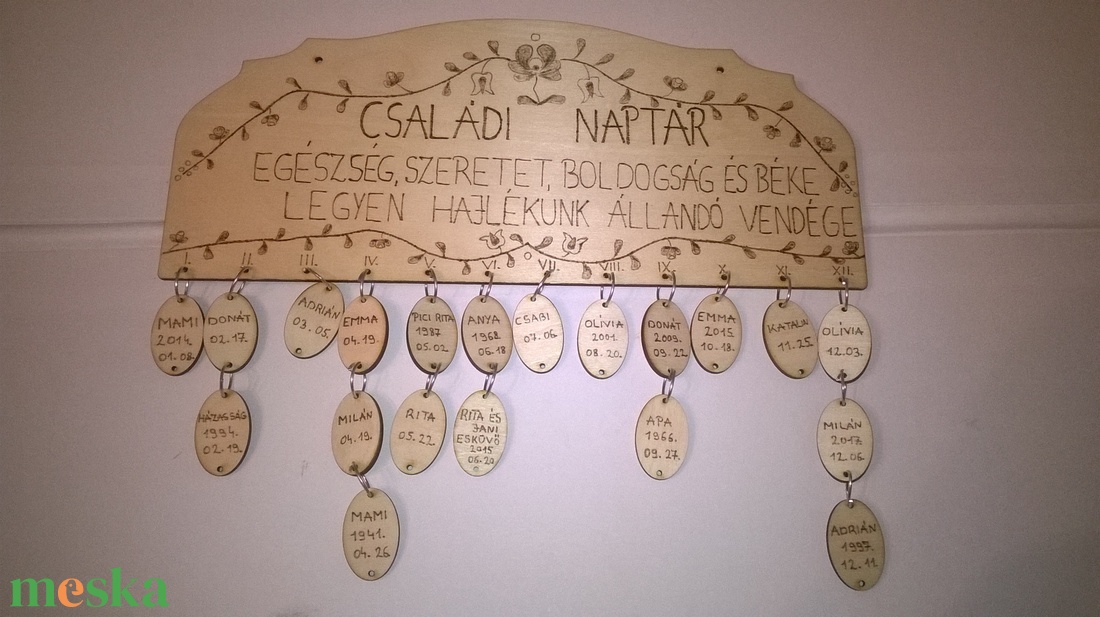 CSALÁDI NAPTÁR
EGÉSZSÉG, SZERETET, BOLDOGSÁG ÉS BÉKE
LEGYEN HAJLÉKUNK ÁLLANDÓ VENDÉGE
I. II. III. IV. V. VI. VII. VIII. IX. X. XI. XII.
MAMI
2014.
01.08.
DONÁT
02.17.
HÁZASSÁG
1994.
02.19.
ADRIÁN
03.05.
EMMA
04.19.
MILÁN
04.19.
MAMI
1941.
04.26
PICI RITA
1987
05.02
RITA
05.22.
ANYA
1968
06.18
RITA ÉS
JANI
ESKÜVŐ
2015
06.20
CSABI
07.06.
OLÍVIA
2001.
08.20.
DONÁT
2009.
09.22
APA
1966.
09.27.
EMMA
2015
10.18.
KATALIN
11.25
OLÍVIA
12.03.
MILÁN
2017
12.06.
ADRIÁN
1997.
12.11
meska